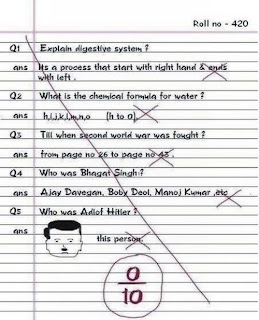 Roll no - 420
Q1 Explain digestive system ?
ans Its a process that start with right hand & ends
with left .
Q2 What is the chemical formula for water ?
ans h,i,j,k,l,m,n,o (h to o)
Q3 Till when second world war was fought ?
ans from page no 26 to page no 43 .
Q4 Who was Bhagat Singh ?
ans Ajay Davegan, Boby Deol, Manoj Kumar ,etc
Q5 Who was Adlof Hitler ?
ans this person.
0
10